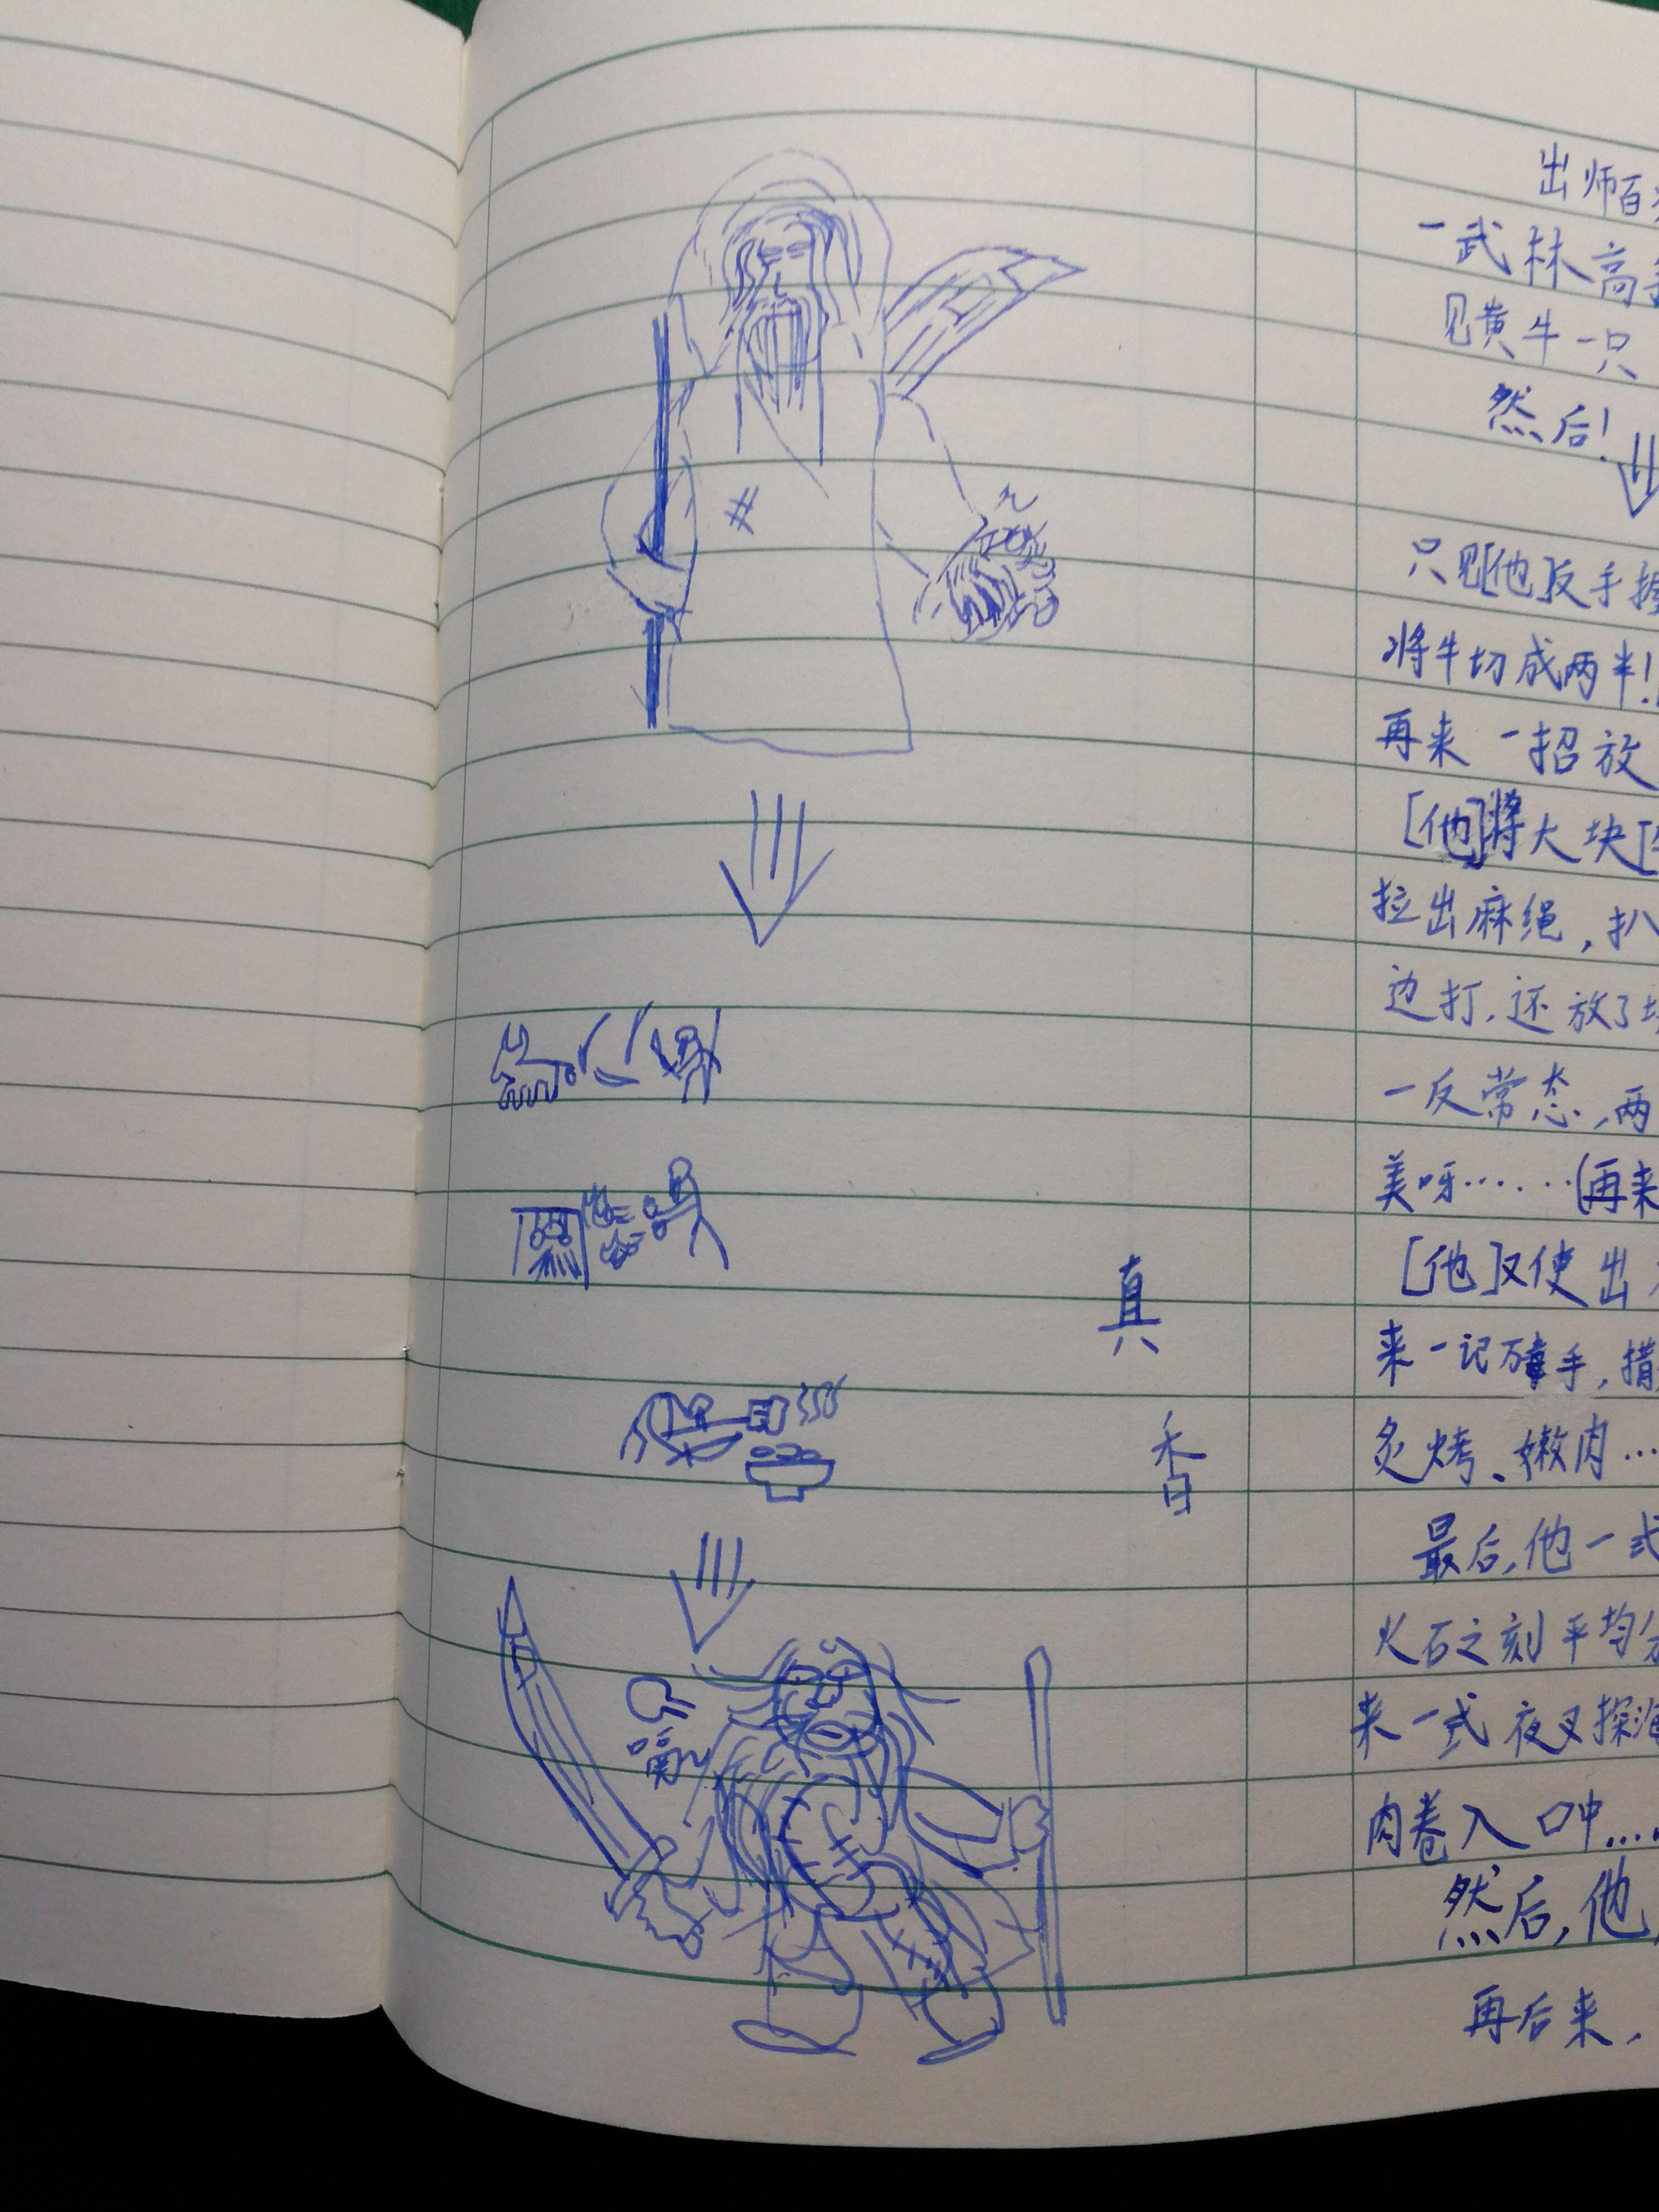 出师百
一武林高手
见黄牛一只
然后！
只见[他]反手握
将牛切成两半！
再来一招放
[他]将大块[
拉出麻绳，扒
边打，还放了
一反常态，两
美呀……（再来
[他]又使出
来一记万毒手，措
炙烤、嫩肉…
最后，他一式
火石之刻平均分
来一式夜叉探海
肉卷入口中……
然后，他
再后来，
真
香
嗝~